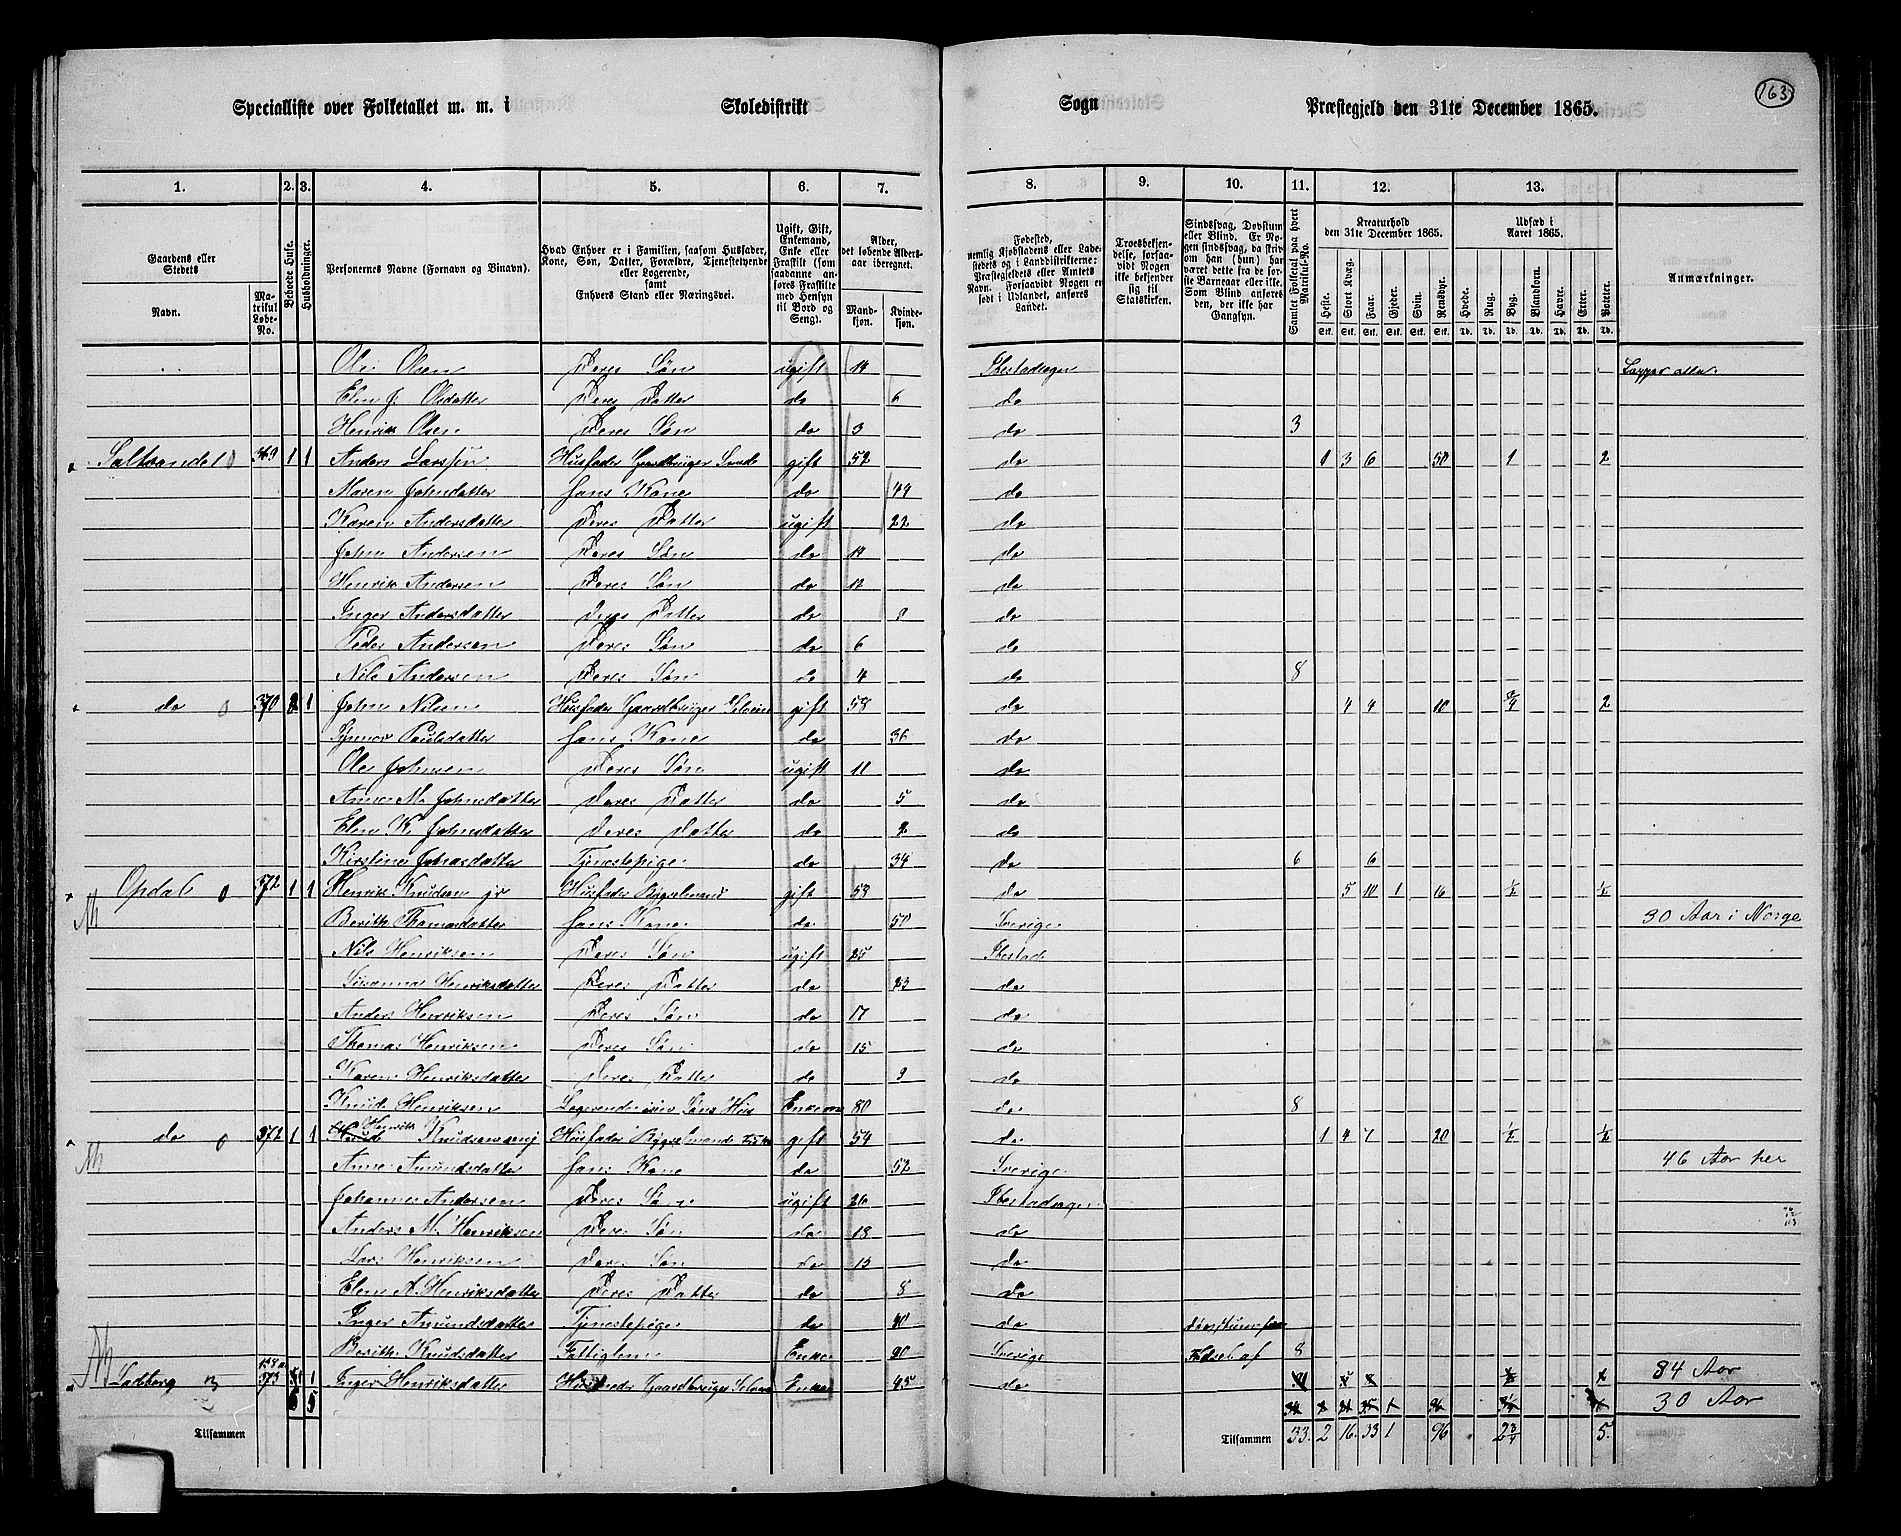 163
Specialliste over Folketallet m. m. i Skoledistrikt Sogn Præstegjeld den 31te December 1865.
1. 2. 3. 4. 5. 6. 7. 8. 9. 10. 11. 12. 13.
Gaardens eller Stedets Navn. Matrikul Løbe-No. Beboede Huse. Husholdninger. Personernes Navne (Fornavn og Binavn). Hvad Enhver er i Familien, saasom Husfader, Kone, Søn, Datter, Forældre, Tjenestetyende eller Logerende, samt Enhvers Stand eller Næringsvei. Ugift, Gift, Enkemand, Enke eller Fraskilt (som saadanne anføres Fraskilte med Hensyn til Bord og Seng). Alder, det løbende Aldersaar iberegnet. Mandkjøn. Kvindekjøn.
Fødested, nemlig Kjøbstadens eller Ladestedets og i Landdistrikterne: Præstegjeldets eller Amtets Navn. Forsaavidt Nogen er født i Udlandet, anføres Landet. Troesbekjendelse, forsaavidt Nogen ikke bekjender sig til Statskirken. Sindssvag, Døvstum eller Blind. Er Nogen sindssvag, da skrives om han (hun) har været dette fra de første Barneaar eller ikke. Som Blind anføres den, der ikke har Gangsyn. Samlet Folketal paa hvert Matrikul-No. Kreaturhold den 31te December 1865. Heste. Stort Kvæg. Faar. Gjeder. Svin. Rensdyr. Udsæd i Aaret 1865. Hvede. Rug. Byg. Blandkorn. Havre. Erter. Poteter. Anmærkninger.
Stk. Stk. Stk. Stk. Stk. Stk. Td. Td. Td. Td. Td. Td. Td.
Ole Olsen Deres Søn ugift 14 Ibestadsogn Lapper alle
Elen J. Olsdatter Deres Datter do 6 do
Henrik Olsen Deres Søn do 3 do 3
Saltvandet 369 1 1 Anders Larssen Husfader Gaardbruger gift 52 do 1 3 6 50 1 2
Maren Johnsdatter Hans Kone do 49 do
Karen Andersdatter Deres Datter ugift 22 do
John Andersen Deres Søn do 14 do
Henrik Andersen Deres Søn do 12 do
Inger Andersdatter Deres Datter do 8 do
Peder Andersen Deres Søn do 6 do
Nils Andersen Deres Søn do 4 do 8
do 370 1 John Nilsen Husfader Gaardbruger Selveier gift 58 do 4 9 10 3/4 2
Paulsdatter Hans Kone do 36 do
Ole Johnsen Deres Søn ugift 11 do
Anne M. Johnsdatter Deres Datter do 5 do
Elen K. Johnsdatter Deres Datter do 2 do
Kirstine Johnsdatter Tjenestepige do 34 do 6 6
Opdal 372 1 1 Henrik Knudsen jr Husfader Bygselmand gift 53 do 5 10 1 16 1/2 1/2
Berith Thomasdatter Hans Kone do 50 Sverige 30 Aar i Norge
Nils Henriksen Deres Søn ugift 25 Ibestad
Susanna Henriksdatter Deres Datter do 23 do
Anders Henriksen Deres Søn do 17 do
Thomas Henriksen Deres Søn do 15 do
Karen Henriksdatter Deres Datter do 9 do
Knud Henriksen Logerende i sin Søns Hus Enkem 80 do 8
do 372 1 1 Henrik Knudsen Husfader Bygselmand gift 54 do 1 4 7 20 1/2 1/2
Anne Amundsdatter Hans Kone do 52 Sverige 46 Aar her
Johannes Andersen Deres Søn ugift 26 Ibestadsogn
Anders M. Henriksen Deres Søn do 18 do
Lars Henriksen Deres Søn do 15 do
Elen A. Henriksdatter Deres Datter do 8 do
Inger Amundsdatter Tjenestepige do 40 do
Berith Knudsdatter Fattiglem Enke 90 Sverige 8 84 Aar
373 1 Inger Henriksdatter Gaardbruger Enke 45 do 30 Aar
Tilsammen
Tilsammen 33. 2 16 33 1 96 2 3/4 5